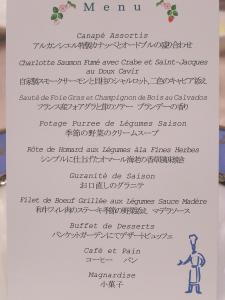 Menu
Canapé Assortis
アルカンシェル特製カナッペとオードブルの盛り合わせ
Charlotte Saumon Fumé avec Crabe et Saint-Jacques
au Doux Cavir
自家製スモークサーモンと貝柱のシャルロット、二色のキャビア添え
Sauté de Foie Gras et Champignon de Bois au Calvados
フランス産フォアグラと茸のソテー ブランデーの香り
Potage Purree de Légumes Saison
季節の野菜のクリームスープ
Rôte de Homard aux Légumes Ala Fines Herbes
シンプルに仕上げたオマール海老の香草風味焼き
Guranité de Saison
お口直しのグラニテ
Filet de Boeuf Grillée aux Légumes Sauce Madère
和牛フィレ肉のステーキ季節の野菜添え マデラソース
Buffet de Desserts
バンケットガーデンにてデザートビュッフェ
Café et Pain
コーヒー パン
Magnardise
小菓子